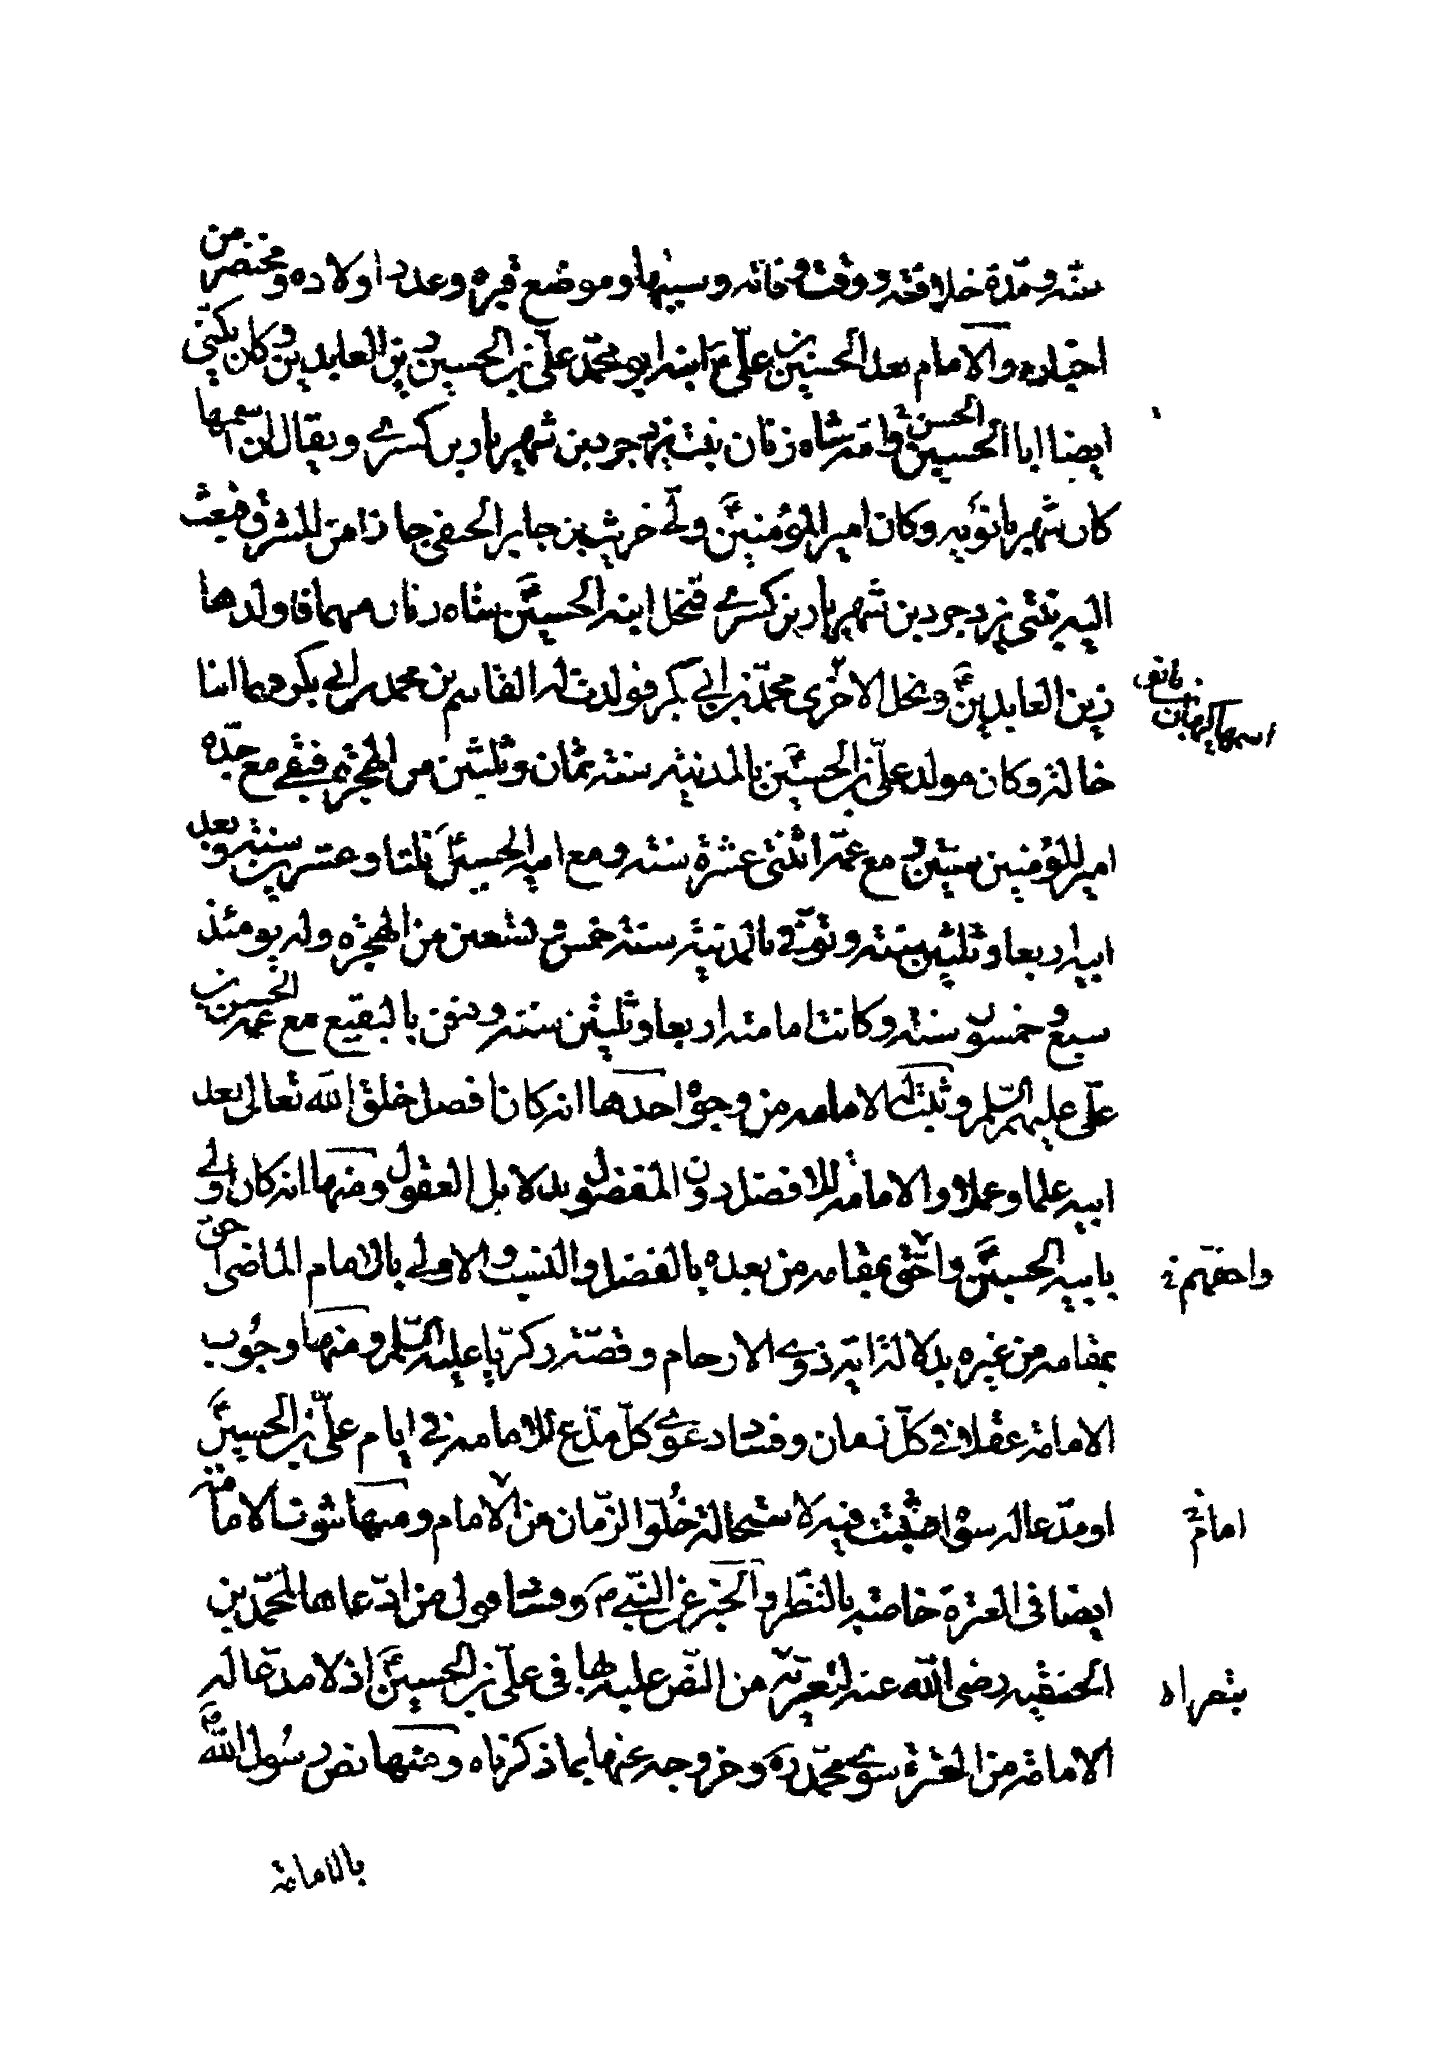 سنه ومدة خلافته ووقت وفاته وسببها وموضع قبره وعدد اولاده ومختصر من
اخباره والامام بعد الحسين بن علي ع ابنه ابو محمد علي بن الحسين زين العابدين ع وكان يكنى
ايضا ابا الحسن وامه شاه زنان بنت يزدجرد بن شهريار بن كسرى ويقال ان اسمها
كان شهربانويه وكان امير المؤمنين ع ولّى حريث بن جابر الحنفي جانبا من المشرق فبعث
اليه بنتي يزدجرد بن شهريار بن كسرى فنحل ابنه الحسين ع شاه زنان منهما فاولدها
زين العابدين ع ونحل الاخرى محمد بن ابي بكر فولدت له القاسم بن محمد بن ابي بكر فهما ابنا
خالة وكان مولد علي بن الحسين ع بالمدينة سنة ثمان وثلثين من الهجرة فبقي مع جده
امير المؤمنين سنتين ومع عمه اثنتي عشرة سنة ومع ابيه الحسين ع ثلثا وعشرين سنة وبعد
ابيه اربعا وثلثين سنة وتوفي بالمدينة سنة خمس وتسعين من الهجرة وله يومئذ
سبع وخمسون سنة وكانت امامته اربعا وثلثين سنة ودفن بالبقيع مع عمه الحسن بن
علي عليهم السلم وثبتت له الامامة من وجوه احدها انه كان افضل خلق الله تعالى بعد
ابيه علما وعملا والامامة للافضل دون المفضول بدلايل العقول ومنها انه كان اولى
بابيه الحسين ع واحق بمقامه من بعده بالفضل والنسب والاولى بالامام الماضي احق
بمقامه من غيره بدلالة اية ذوي الارحام وقصة زكريا عليه السلم ومنها وجوب
الامامة عقلا في كل زمان وفساد دعوى كل مدع للامامة في ايام علي بن الحسين ع
او مدعا له سواه فثبتت فيه لاستحالة خلو الزمان من الامام ومنها ثبوت الامامة
ايضا في العترة خاصة بالنظر والخبر عن النبي ص وفساد قول من ادعاها لمحمد بن
الحنفية رضي الله عنه لتعريه من النص عليه بها في علي بن الحسين ع اذ لا مدعا له
الامامة من العترة سوى محمد ره وخروجه عنها بما ذكرناه ومنها نص رسول الله ص
بالامامة
واحقهم
امام